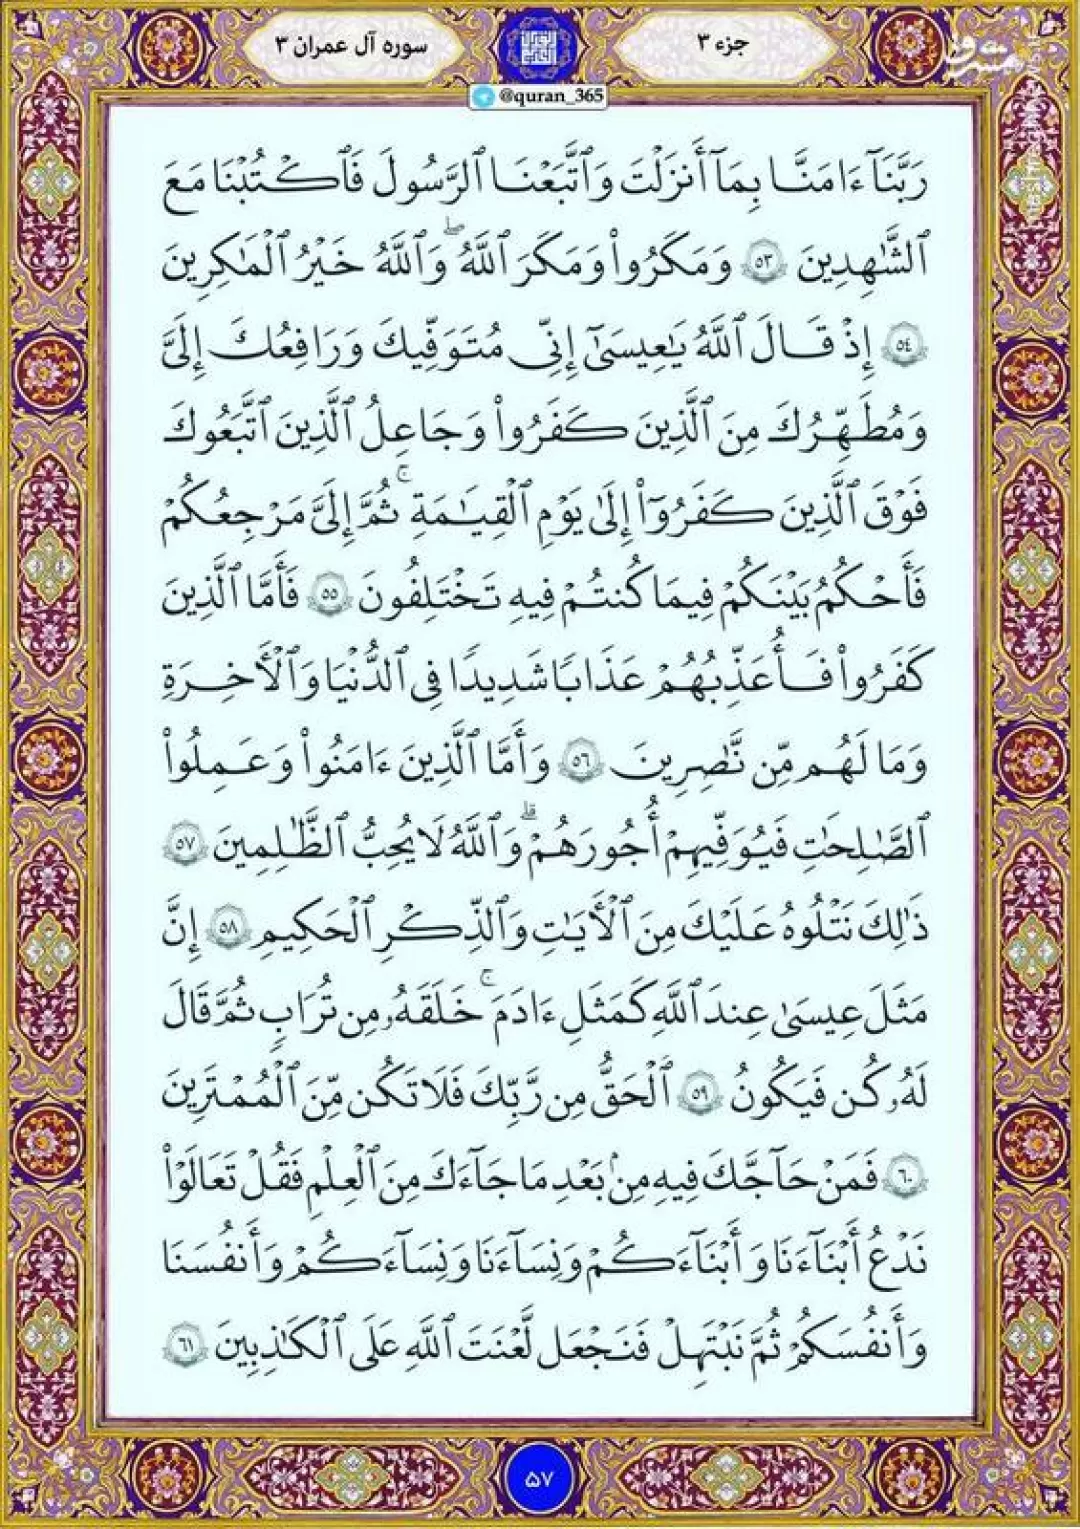 جزء ۳
سوره آل عمران ۳
@quran_365
مشرق
رَبَّنَآ ءَامَنَّا بِمَآ أَنزَلْتَ وَٱتَّبَعْنَا ٱلرَّسُولَ فَٱكْتُبْنَا مَعَ
ٱلشَّٰهِدِينَ ٥٣ وَمَكَرُوا۟ وَمَكَرَ ٱللَّهُ ۖ وَٱللَّهُ خَيْرُ ٱلْمَٰكِرِينَ
٥٤ إِذْ قَالَ ٱللَّهُ يَٰعِيسَىٰٓ إِنِّى مُتَوَفِّيكَ وَرَافِعُكَ إِلَىَّ
وَمُطَهِّرُكَ مِنَ ٱلَّذِينَ كَفَرُوا۟ وَجَاعِلُ ٱلَّذِينَ ٱتَّبَعُوكَ
فَوْقَ ٱلَّذِينَ كَفَرُوٓا۟ إِلَىٰ يَوْمِ ٱلْقِيَٰمَةِ ۚ ثُمَّ إِلَىَّ مَرْجِعُكُمْ
فَأَحْكُمُ بَيْنَكُمْ فِيمَا كُنتُمْ فِيهِ تَخْتَلِفُونَ ٥٥ فَأَمَّا ٱلَّذِينَ
كَفَرُوا۟ فَأُعَذِّبُهُمْ عَذَابًا شَدِيدًا فِى ٱلدُّنْيَا وَٱلْأَخِرَةِ
وَمَا لَهُم مِّن نَّٰصِرِينَ ٥٦ وَأَمَّا ٱلَّذِينَ ءَامَنُوا۟ وَعَمِلُوا۟
ٱلصَّٰلِحَٰتِ فَيُوَفِّيهِمْ أُجُورَهُمْ ۗ وَٱللَّهُ لَا يُحِبُّ ٱلظَّٰلِمِينَ ٥٧
ذَٰلِكَ نَتْلُوهُ عَلَيْكَ مِنَ ٱلْأَيَٰتِ وَٱلذِّكْرِ ٱلْحَكِيمِ ٥٨ إِنَّ
مَثَلَ عِيسَىٰ عِندَ ٱللَّهِ كَمَثَلِ ءَادَمَ ۖ خَلَقَهُۥ مِن تُرَابٍ ثُمَّ قَالَ
لَهُۥ كُن فَيَكُونُ ٥٩ ٱلْحَقُّ مِن رَّبِّكَ فَلَا تَكُن مِّنَ ٱلْمُمْتَرِينَ
٦٠ فَمَنْ حَآجَّكَ فِيهِ مِنۢ بَعْدِ مَا جَآءَكَ مِنَ ٱلْعِلْمِ فَقُلْ تَعَالَوْا۟
نَدْعُ أَبْنَآءَنَا وَأَبْنَآءَكُمْ وَنِسَآءَنَا وَنِسَآءَكُمْ وَأَنفُسَنَا
وَأَنفُسَكُمْ ثُمَّ نَبْتَهِلْ فَنَجْعَل لَّعْنَتَ ٱللَّهِ عَلَى ٱلْكَٰذِبِينَ ٦١
۵۷